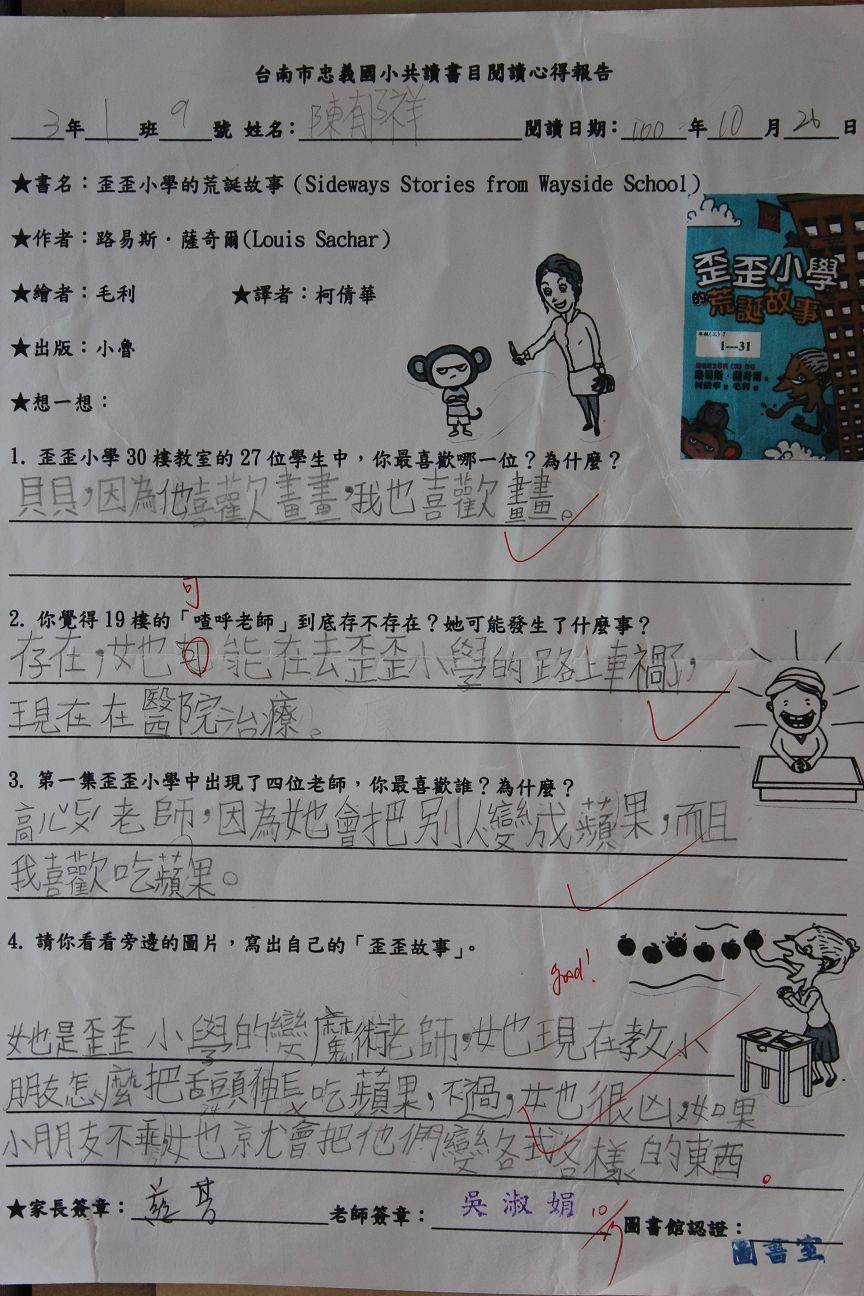 台南市忠義國小共讀書目閱讀心得報告
3年1班9號 姓名：陳郁祥 閱讀日期：100年10月26日
★書名：歪歪小學的荒誕故事（Sideways Stories from Wayside School）
★作者：路易斯．薩奇爾(Louis Sachar)
歪歪小學
的荒誕故事
★繪者：毛利 ★譯者：柯倩華
1---31
★出版：小魯
路易斯．薩奇爾
柯倩華 毛利
★想一想：
1. 歪歪小學30樓教室的27位學生中，你最喜歡哪一位？為什麼？
貝貝，因為他喜歡畫畫，我也喜歡畫畫。
可
2. 你覺得19樓的「喳呼老師」到底存不存在？她可能發生了什麼事？
存在，她可能在去歪歪小學的路上車禍，
現在在醫院治療。
3. 第一集歪歪小學中出現了四位老師，你最喜歡誰？為什麼？
老師，因為她會把別人變成蘋果，而且
我喜歡吃蘋果。
4. 請你看看旁邊的圖片，寫出自己的「歪歪故事」。
good!
她是歪歪小學的變魔術老師，她現在教小
朋友怎麼把舌頭伸長吃蘋果，不過，她很凶，如果
小朋友不乖她就會把他們變各式各樣的東西。
★家長簽章： 老師簽章：吳淑娟 圖書館認證：
圖書室